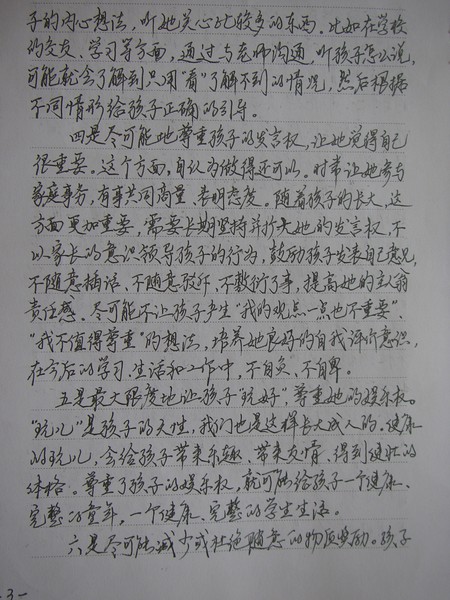 子的内心想法，听她关心比较多的东西。比如在学校
的交友、学习等方面，通过与老师沟通，听孩子怎么说，
可能就会了解到只用看"了解不到的情况，然后根据
不同情形给孩子正确的引导。
四是尽可能地尊重孩子的发言权，让她觉得自己
很重要。这个方面，自认为做得还可以。时常让她参与
家庭事务，有事共同商量、表明态度。随着孩子的长大，这
方面更加重要，需要长期坚持并扩大她的发言权，不
以家长的意识领导孩子的行为，鼓励孩子发表自己意见，
不随意插话、不随意驳斥、不敷衍了事，提高她的主人翁
责任感。尽可能不让孩子产生"我的观点一点也不重要"、
"我不值得尊重"的想法，培养她良好的自我评价意识，
在今后的学习、生活和工作中，不自负、不自卑。
五是最大限度地让孩子"玩好"，尊重她的娱乐权。
"玩儿"是孩子的天性，我们也是这样长大成人的。健康
的玩儿，会给孩子带来乐趣、带来友情、得到健壮的
体格。尊重了孩子的娱乐权，就可能给孩子一个健康、
完整的童年，一个健康、完整的学生生活。
六是尽可能减少或杜绝随意的物质奖励。孩子
-3-